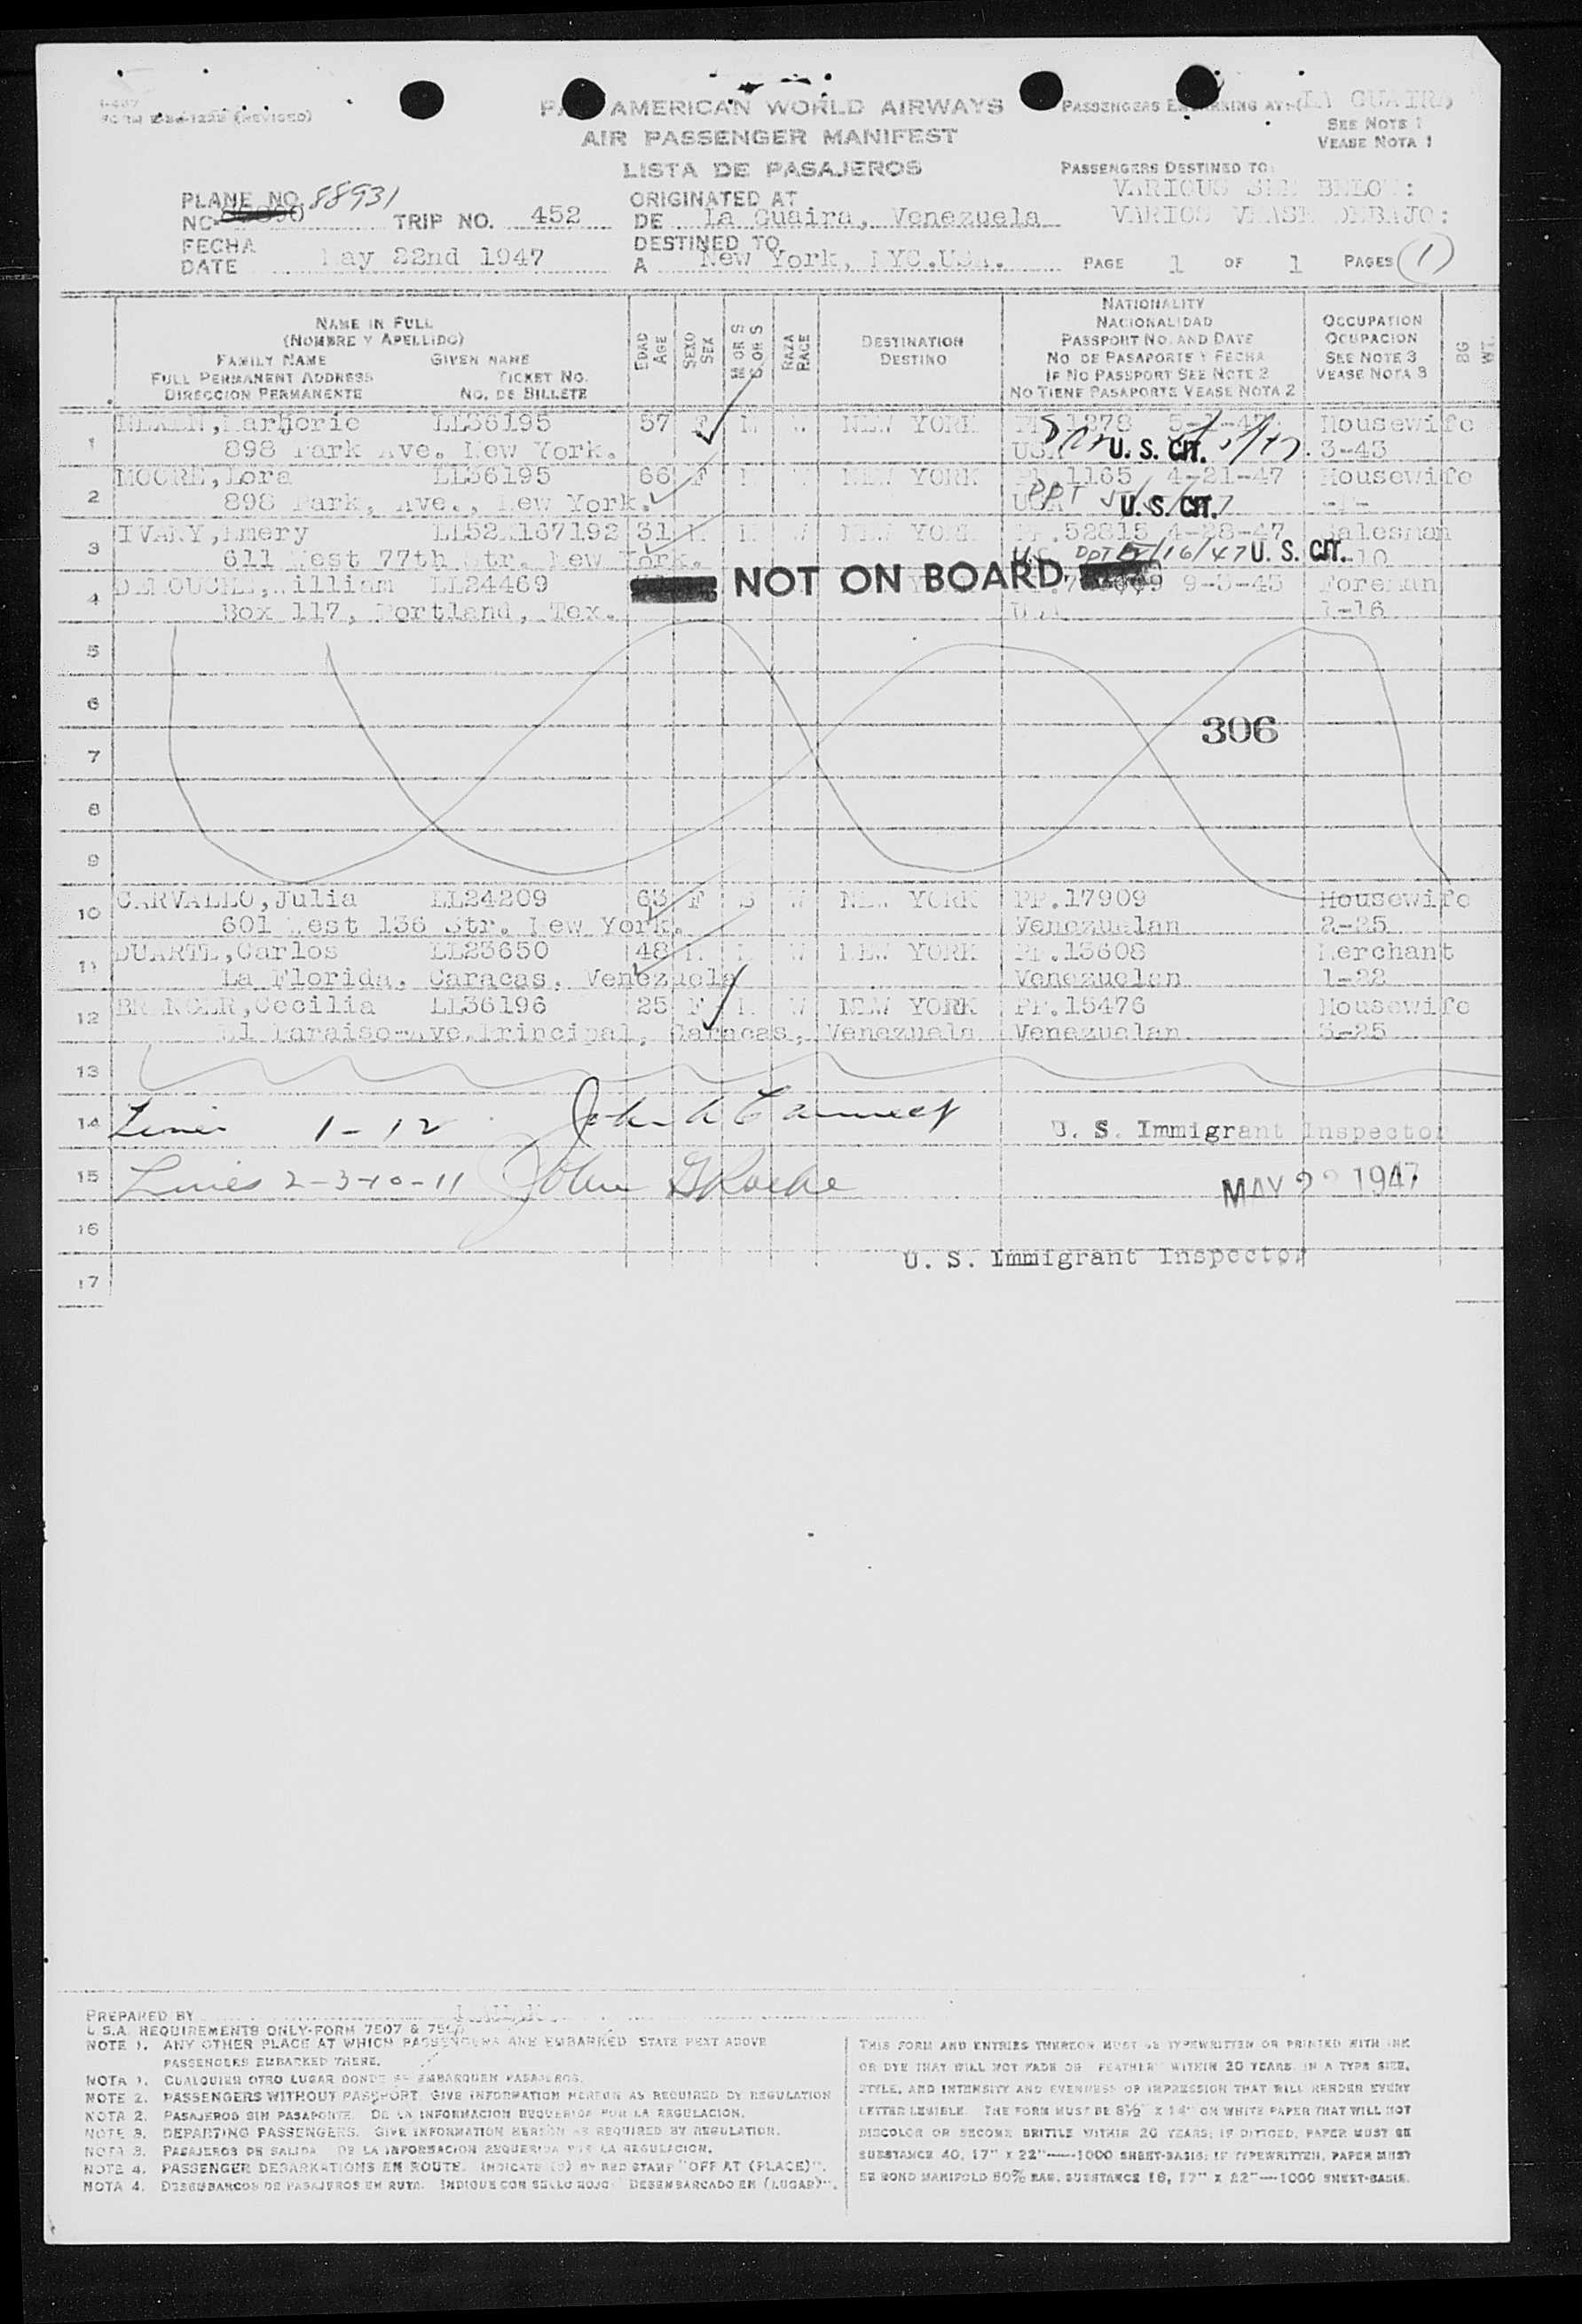 FORM (REVISED)
AMERICAN WORLD AIRWAYS
AIR PASSENGER MANIFEST
LISTA DE PASAJEROS
PASSENGERS EMBARKING AT: LA GUAIRA
SEE NOTE 1
VEASE NOTA 1
PASSENGERS DESTINED TO:
VARIOUS SEE BELOW:
VARIOS VEASE DEBAJO:
PLANE NO. 88931
NC- TRIP NO. 452
ORIGINATED AT
DE La Guaira, Venezuela
FECHA
DATE May 22nd 1947
DESTINED TO
A New York, NYC.USA.
PAGE 1 OF 1 PAGES (1)
NAME IN FULL
(NOMBRE Y APELLIDO)
FAMILY NAME GIVEN NAME
FULL PERMANENT ADDRESS TICKET NO.
DIRECCION PERMANENTE NO. DE BILLETE
EDAD AGE
SEXO SEX
M OR S
C OR S
RAZA RACE
DESTINATION
DESTINO
NATIONALITY
NACIONALIDAD
PASSPORT NO. AND DATE
NO DE PASAPORTE Y FECHA
IF NO PASSPORT SEE NOTE 2
NO TIENE PASAPORTE VEASE NOTA 2
OCCUPATION
OCUPACION
SEE NOTE 3
VEASE NOTA 3
BG WT.
1 Marjorie LL36195 57 F M W NEW YORK PP.1278 Housewife
898 Park Ave. New York. USA U. S. CIT. 3-43
2 MOORE, Lora LL36195 66 F M W NEW YORK PP.1165 4-21-47 Housewife
898 Park, Ave., New York. USA PPT U. S. CIT.
3 IVANY, Emery LL52 167192 31 M M W NEW YORK PP.52815 4-28-47 Salesman
611 West 77th Str. New York. U.S. PPT 5/16/47 U. S. CIT.
4 William LL24469 NOT ON BOARD 9-5-45 Foreman
Box 117, Portland, Tex. USA 1-16
5
6
306
7
8
9
10 CARVALLO, Julia LL24209 63 F S W NEW YORK PP.17909 Housewife
601 West 136 Str. New York. Venezuelan 2-25
11 DUARTE, Carlos LL23650 48 M M W NEW YORK PP.13608 Merchant
La Florida, Caracas, Venezuela Venezuelan 1-22
12 Cecilia LL36196 25 F M W NEW YORK PP.15476 Housewife
El Paraiso-Ave.Principal, Caracas, Venezuela Venezuelan 3-25
13
14 Lines 1-12 John U. S. Immigrant Inspector
15 Lines 2-3-10-11 John G Roche MAY 22 1947
16
U. S. Immigrant Inspector
17
PREPARED BY
U.S.A. REQUIREMENTS ONLY-FORM 7507 &
NOTE 1. ANY OTHER PLACE AT WHICH PASSENGERS ARE EMBARKED STATE NEXT ABOVE
PASSENGERS EMBARKED THERE.
NOTA 1. CUALQUIER OTRO LUGAR DONDE SE EMBARQUEN PASAJEROS.
NOTE 2. PASSENGERS WITHOUT PASSPORT. GIVE INFORMATION HEREON AS REQUIRED BY REGULATION
NOTA 2. PASAJEROS SIN PASAPORTE. DE LA INFORMACION REQUERIDA POR LA REGULACION.
NOTE 3. DEPARTING PASSENGERS. GIVE INFORMATION HEREON AS REQUIRED BY REGULATION.
NOTA 3. PASAJEROS DE SALIDA DE LA INFORMACION REQUERIDA POR LA REGULACION.
NOTE 4. PASSENGER DEBARKATIONS EN ROUTE. INDICATE (S) BY RED STAMP "OFF AT (PLACE)".
NOTA 4. DESEMBARCOS DE PASAJEROS EN RUTA. INDIQUE CON SELLO ROJO: DESEMBARCADO EN (LUGAR)".
THIS FORM AND ENTRIES THEREON MUST BE TYPEWRITTEN OR PRINTED WITH INK
OR DYE THAT WILL NOT FADE OR "FEATHER" WITHIN 20 YEARS, IN A TYPE SIZE,
STYLE, AND INTENSITY AND EVENNESS OF IMPRESSION THAT WILL RENDER EVERY
LETTER LEGIBLE. THE FORM MUST BE 8½" X 14" ON WHITE PAPER THAT WILL NOT
DISCOLOR OR BECOME BRITTLE WITHIN 20 YEARS; IF DITTOED, PAPER MUST BE
SUBSTANCE 40, 17" X 22"—1000 SHEET-BASIS; IF TYPEWRITTEN, PAPER MUST
BE BOND MANIFOLD 50% RAG, SUBSTANCE 16, 17" X 22"—1000 SHEET-BASIS.